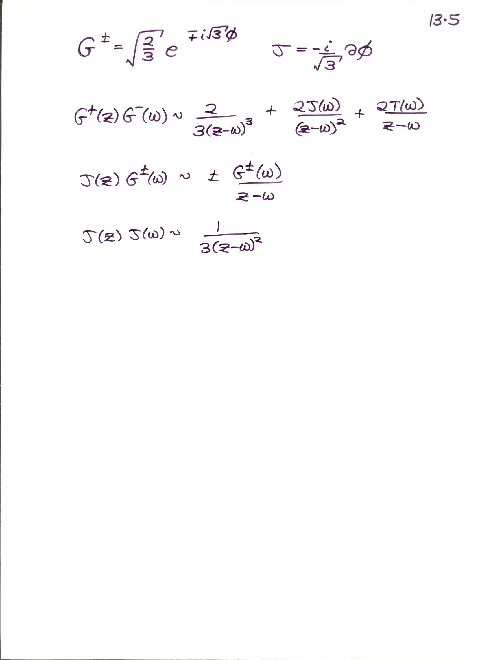 13.5
G^± = √(2/3) e^{∓i√3φ}    J = -i/√3 ∂φ
G⁺(z) G⁻(ω) ~ 2/(3(z-ω)³) + 2J(ω)/(z-ω)² + 2T(ω)/(z-ω)
J(z) G^±(ω) ~ ± G^±(ω)/(z-ω)
J(z) J(ω) ~ 1/(3(z-ω)²)